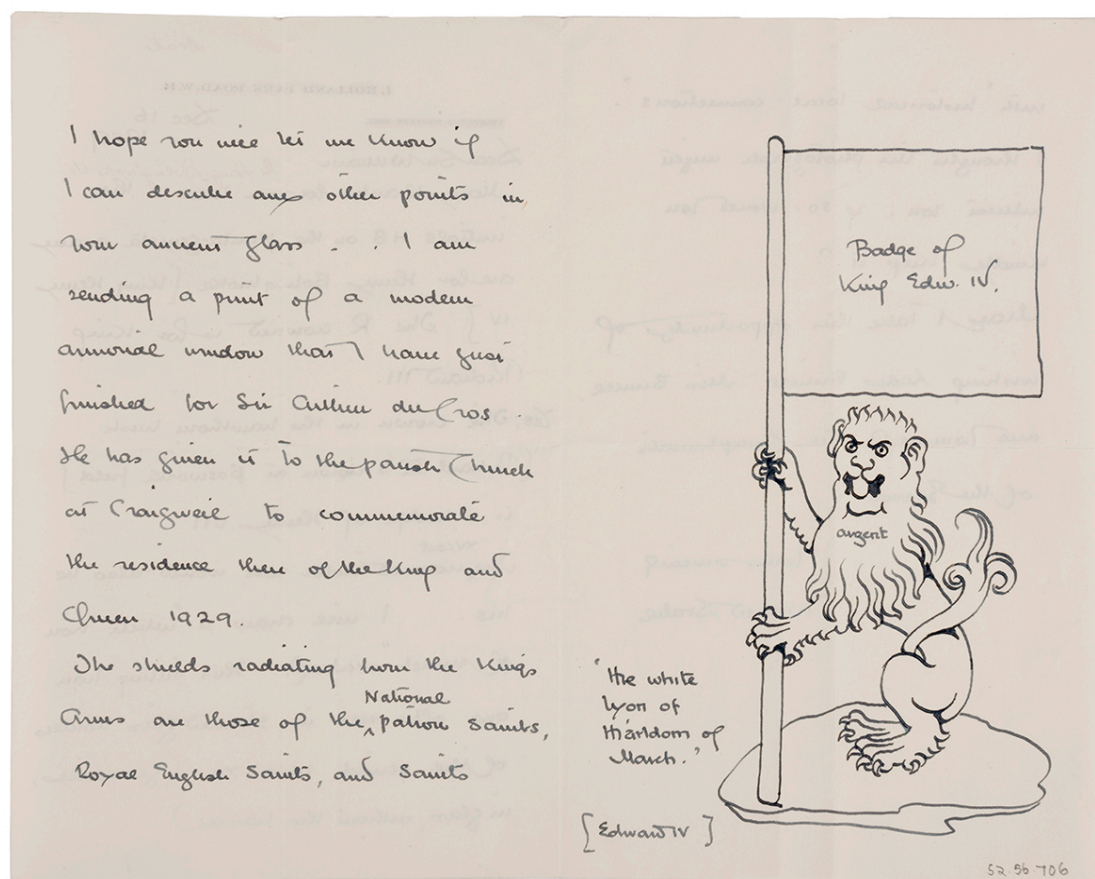 I hope you will let me know if
I can describe any other points in
your ancient glass . . I am
sending a print of a modern
armorial window that I have just
finished for Sir Arthur du Cros.
He has given it to the parish Church
at Craigweil to commemorate
the residence there of the King and
Queen 1929.
The shields radiating from the King's
Arms are those of the National patron saints,
Royal English Saints, and Saints
Badge of
King Edw. IV.
argent
"the white
lyon of
th'arldom of
March."
[Edward IV]
52.96.706